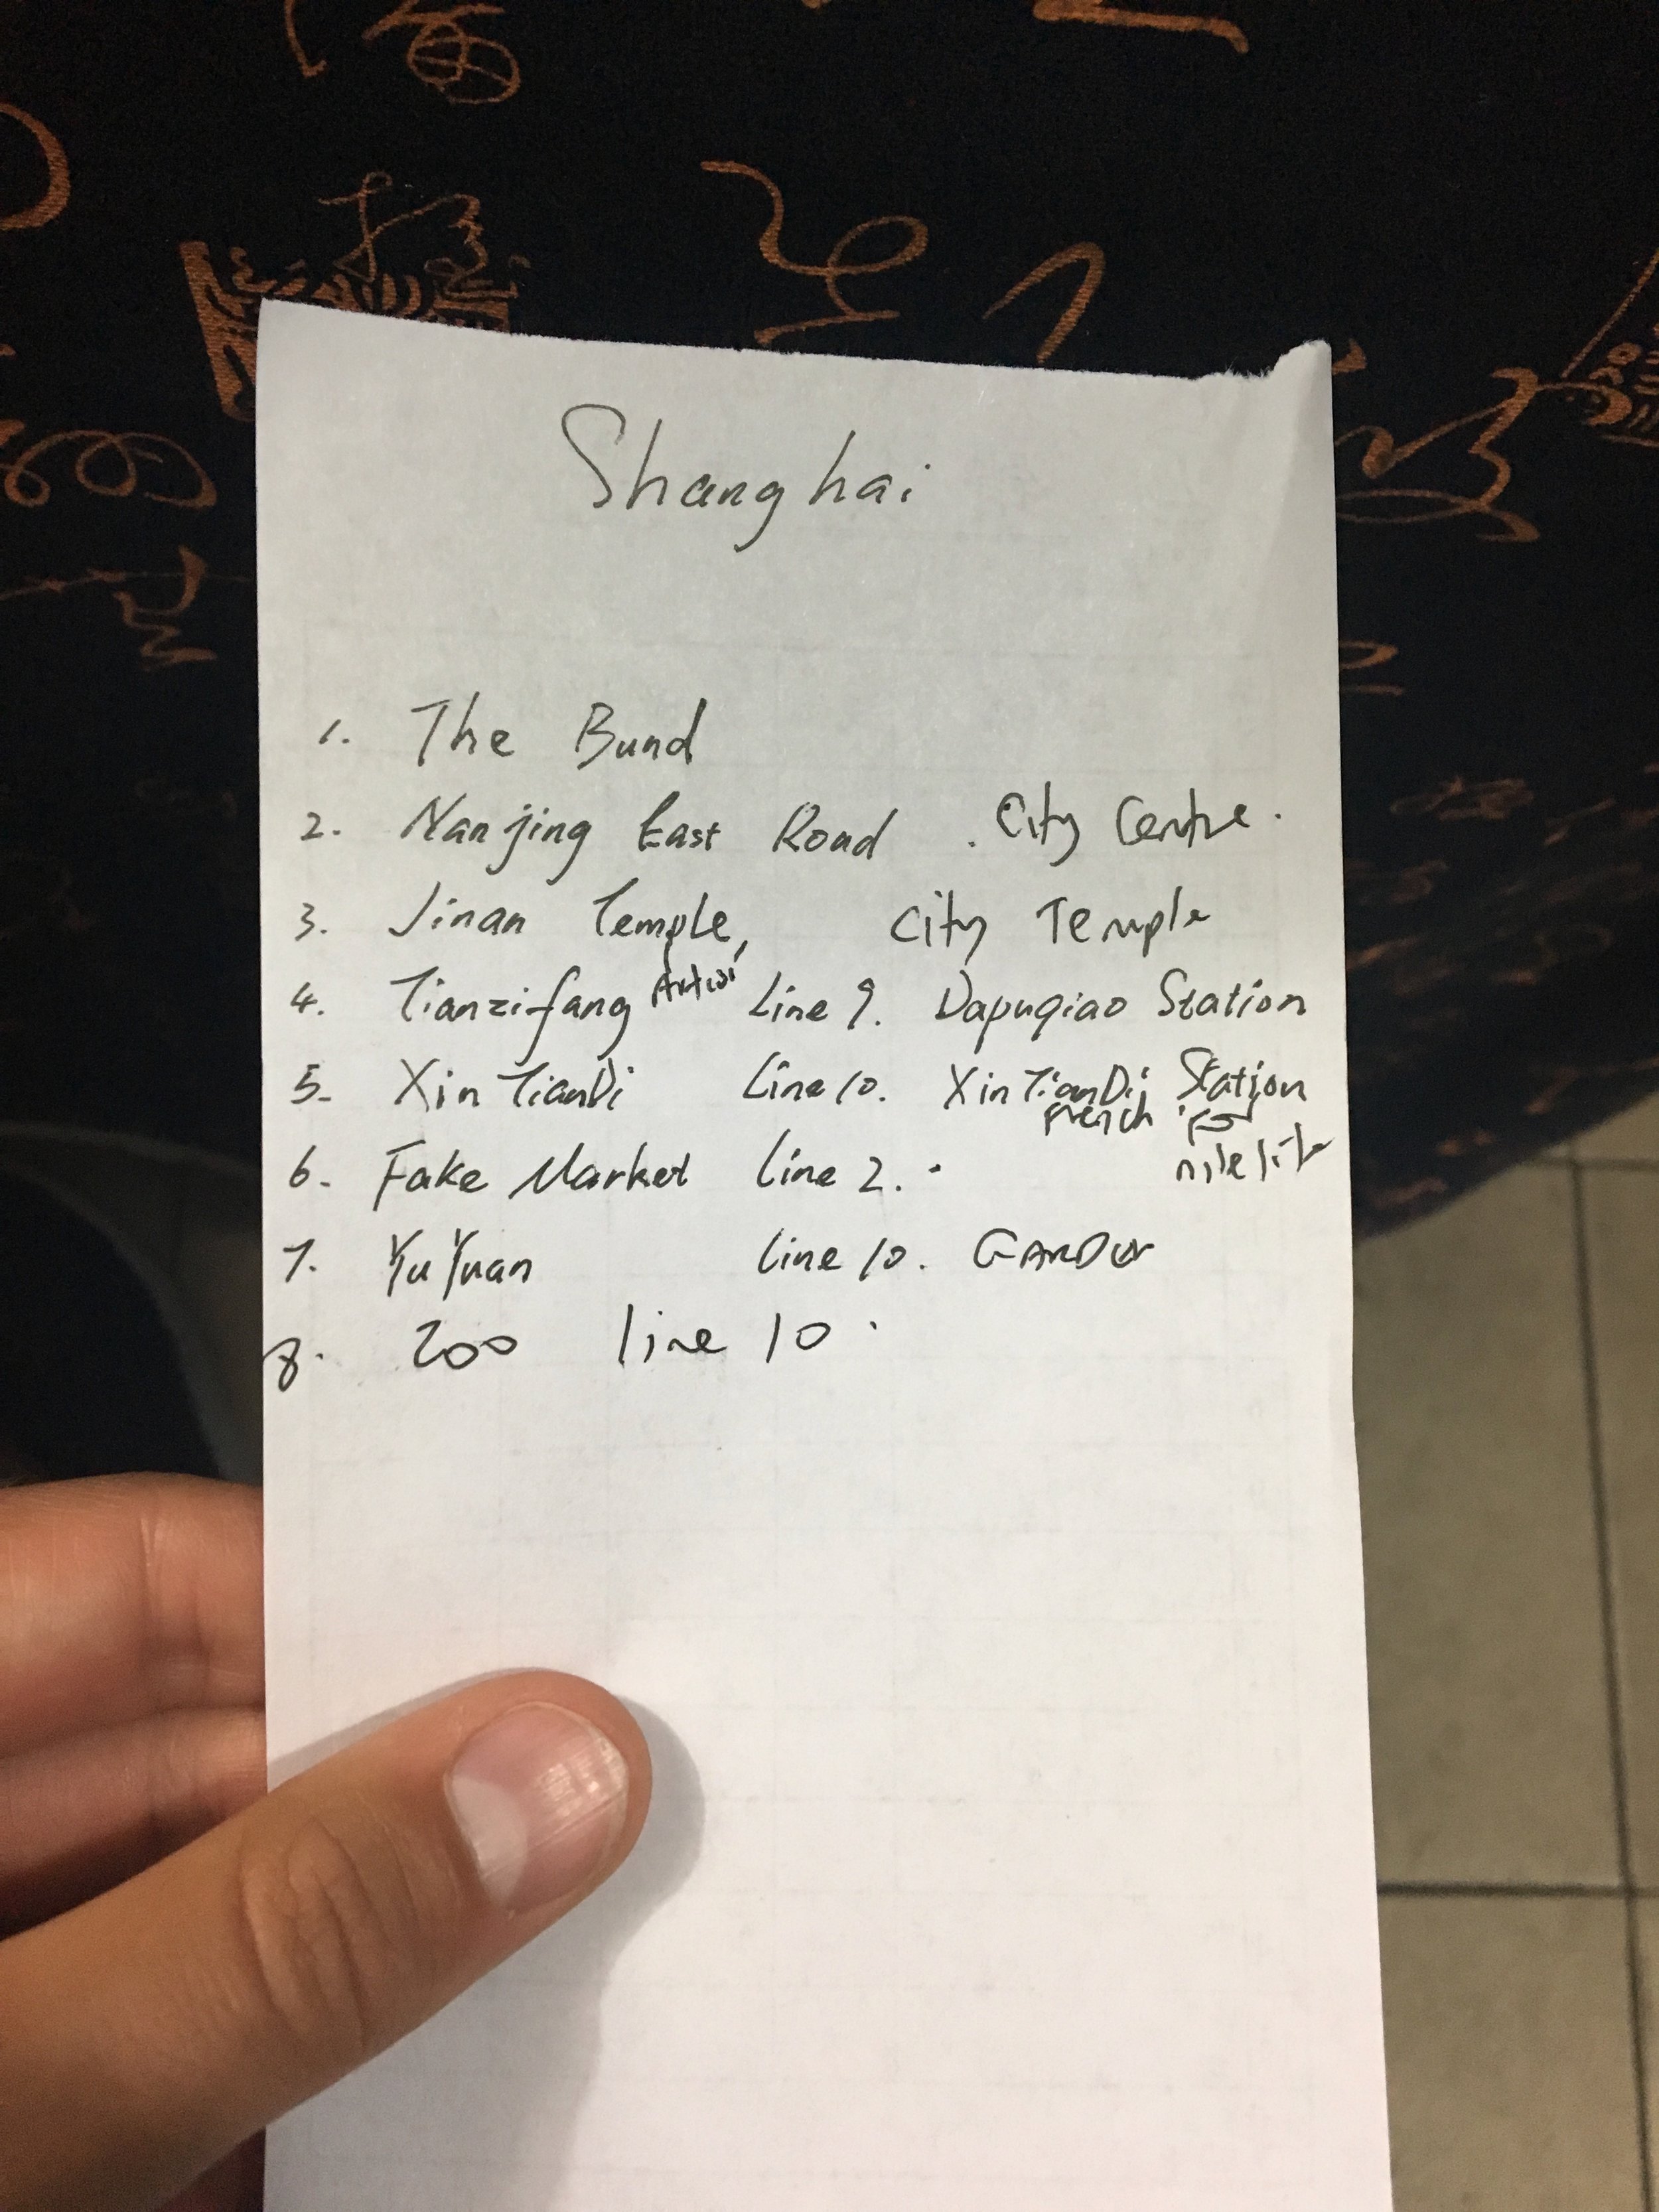 Shanghai
1. The Bund
2. Nanjing East Road . City Centre.
3. Jinan Temple, City Temple
4. Tianzifang Line 9. Dapuqiao Station
5. XinTianDi Line 10. XinTianDi Station
French for
6. Fake Market Line 2.
7. YuYuan Line 10. GARDEN
8. Zoo line 10.